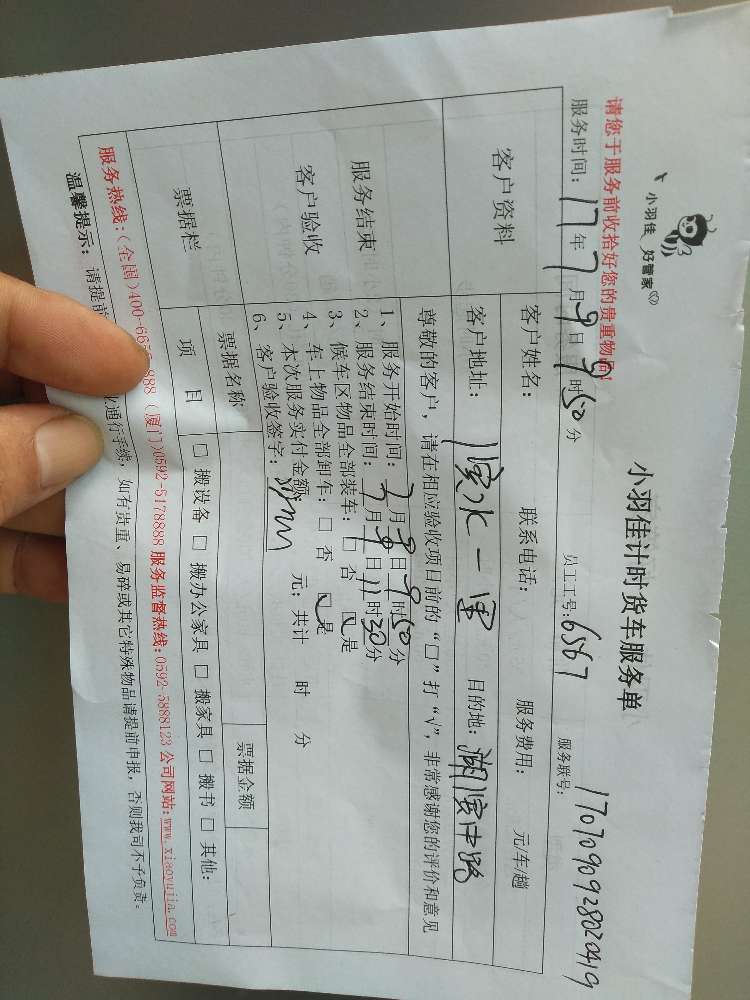 小羽佳 好管家
小羽佳计时货车服务单
请您于服务前收拾好您的贵重物品!
服务时间: 17年7月9日9时50分 员工工号: 6567 服务联号: 1707090928020419
客户资料
客户姓名: 联系电话: 服务费用: 元/车/趟
客户地址: 滨水一里 目的地: 湖滨中路
服务结束
客户验收
尊敬的客户，请在相应验收项目前的“□”打“√”，非常感谢您的评价和意见
1、服务开始时间: 7月9日9时50分
2、服务结束时间: 7月9日11时30分
3、候车区物品全部装车: □ 否 ☑ 是
4、车上物品全部卸车: □ 否 ☑ 是
5、本次服务实付金额 元; 共计 时 分
6、客户验收签字:
票据栏
票据名称 票据金额
项目 □ 搬设备 □ 搬办公家具 □ 搬家具 □ 搬书 □ 其他:
服务热线: (全国)400-66 888 (厦门)0592-5178888 服务监督热线: 0592-5888123 公司网站: www.xiaoyujia.com
温馨提示: 请提前 通行手续, 如有贵重、易碎或其它特殊物品请提前申报, 否则我司不予负责。